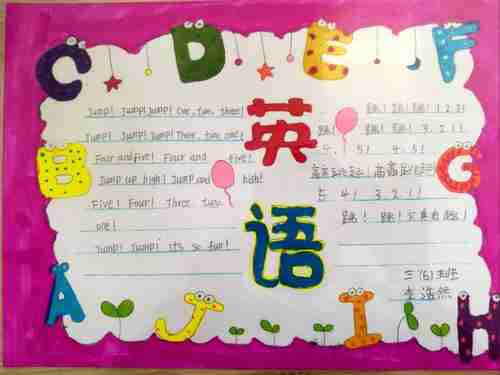 C D E F
B G
A J I H
英
语
Jump! Jump! Jump! One, two, three!
Jump! Jump! Jump! Three, two, one!
Four and five! Four and five!
Jump up high! Jump and high!
Five! Four! Three two
one!
Jump! Jump! it's so fun!
跳! 跳! 跳! 1 2 3!
跳! 跳! 跳! 3. 2. 1!
4. 5! 4. 5!
高高跳起! 高高跳起!
5 4! 3. 2. 1!
跳! 跳! 它真有趣!
三(6)班
李浩然